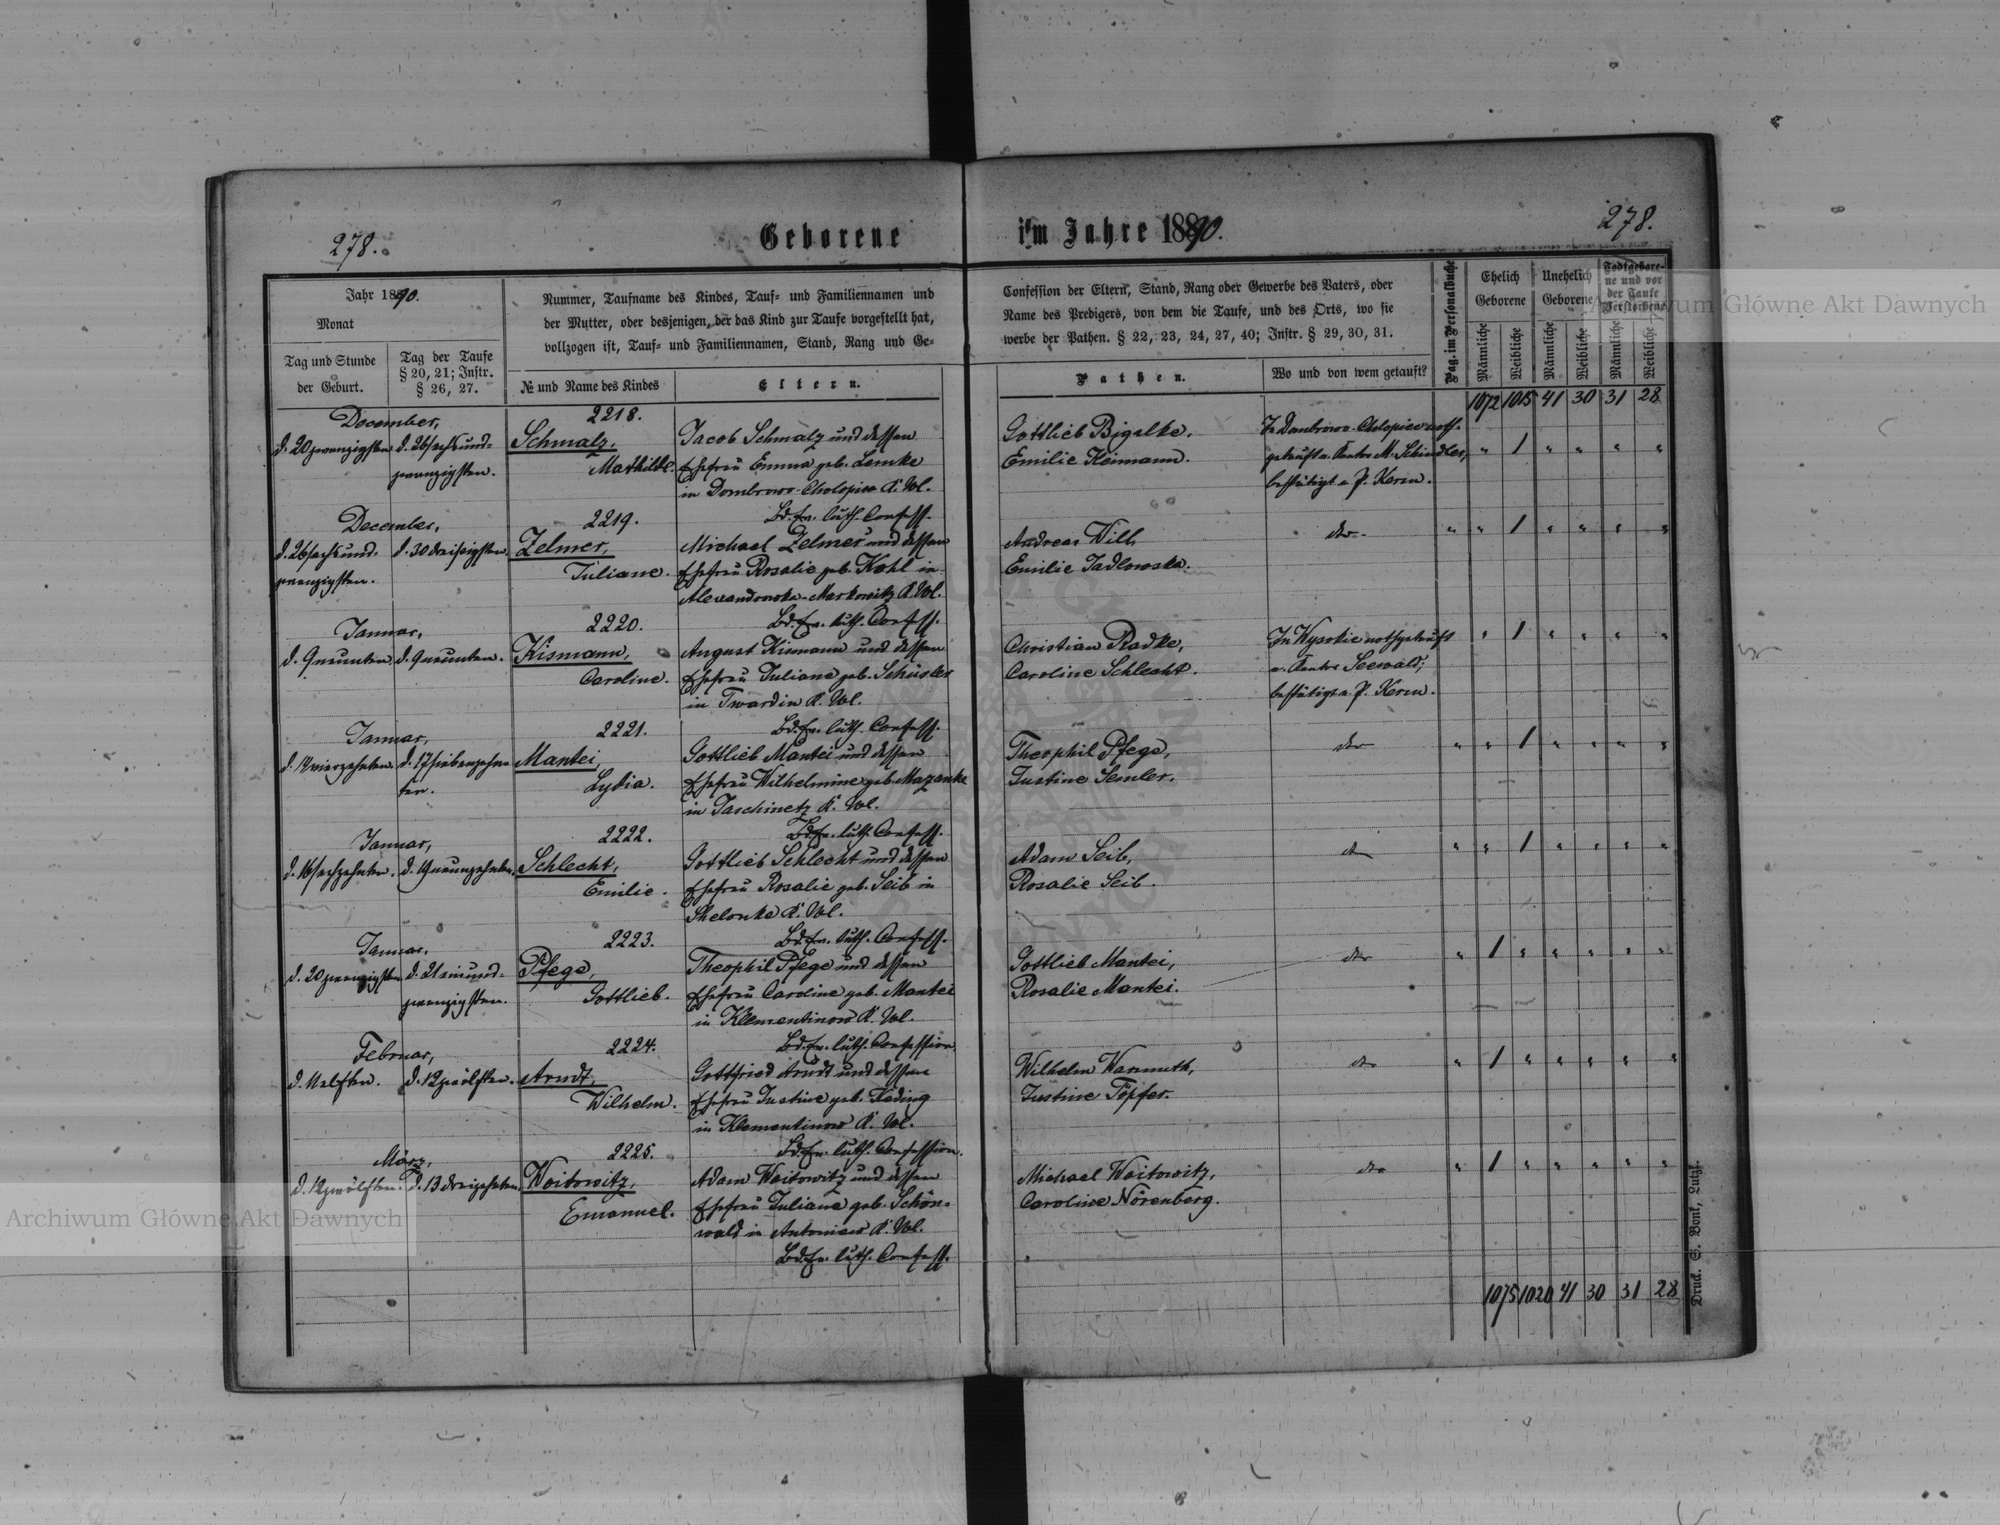 278.
Geborene
im Jahre 1890.
278.
Jahr 1890.
Monat
Tag und Stunde
der Geburt.
Tag der Taufe
§ 20, 21; Instr.
§ 26, 27.
Nummer, Taufname des Kindes, Tauf- und Familiennamen und
der Mutter, oder desjenigen, der das Kind zur Taufe vorgestellt hat,
vollzogen ist, Tauf- und Familiennamen, Stand, Rang und Ge-
№ und Name des Kindes
Eltern.
Confession der Eltern, Stand, Rang oder Gewerbe des Vaters, oder
Name des Predigers, von dem die Taufe, und des Orts, wo sie
werbe der Pathen. § 22, 23, 24, 27, 40; Instr. § 29, 30, 31.
Pathen.
Wo und von wem getauft?
Pag. im Personalbuche
Ehelich
Geborene
Unehelich
Geborene
Todtgebore-
ne und vor
der Taufe
Verstorbene
Männliche
Weibliche
Männliche
Weibliche
Männliche
Weibliche
1072 1015 41 30 31 28
December,
d. 20 zwanzigsten
d. 26 sechsund-
zwanzigsten.
2218.
Schmalz,
Mathilde.
Jacob Schmalz und dessen
Ehefrau Emma geb. Lemke
in Dombrowo-Cholopice K. Wol.
Bd. ev. luth. Confess.
Gottlieb Bigalke,
Emilie Keimann.
In Dambrowo-Cholopice noth-
getauft v. Kantor M. Schindler,
bestätigt v. P. Kerm.
" 1 " " " "
December,
d. 26 sechsund-
zwanzigsten.
d. 30 dreißigsten.
2219.
Zelmer,
Juliane.
Michael Zelmer und dessen
Ehefrau Rosalie geb. Kohl in
Alexandrowka-Markowitz K. Wol.
Bd. ev. luth. Confess.
Andreas Will,
Emilie Jadlowska.
dto
" " 1 " " " "
Januar,
d. 9 neunten.
d. 9 neunten.
2220.
Kismann,
Caroline.
August Kismann und dessen
Ehefrau Juliane geb. Schüsler
in Twardin K. Wol.
Bd. ev. luth. Confess.
Christian Radke,
Caroline Schlecht.
In Wysokie nothgetauft
v. Kantor Seewald;
bestätigt v. P. Kerm.
" 1 " " " "
Januar,
d. 14 vierzehnten.
d. 17 siebenzehn-
ten.
2221.
Mantei,
Lydia.
Gottlieb Mantei und dessen
Ehefrau Wilhelmine geb. Mazanke
in Jaschinetz K. Wol.
Bd. ev. luth. Confess.
Theophil Pfege,
Justine Semler.
dto
" " 1 " " " "
Januar,
d. 16 sechzehnten.
d. 19 neunzehnten.
2222.
Schlecht,
Emilie.
Gottlieb Schlecht und dessen
Ehefrau Rosalie geb. Seib in
Shelonka K. Wol.
Bd. ev. luth. Confess.
Adam Seib,
Rosalie Seib.
dto
" " 1 " " " "
Januar,
d. 20 zwanzigsten
d. 21 einund-
zwanzigsten.
2223.
Pfege,
Gottlieb.
Theophil Pfege und dessen
Ehefrau Caroline geb. Mantei
in Klementinow K. Wol.
Bd. ev. luth. Confession.
Gottlieb Mantei,
Rosalie Mantei.
dto
" 1 " " " " "
Februar,
d. 11 elften.
d. 12 zwölften.
2224.
Arndt,
Wilhelm.
Gottfried Arndt und dessen
Ehefrau Justine geb. Käding
in Klementinow K. Wol.
Bd. ev. luth. Confession.
Wilhelm Warmuth,
Justine Töpfer.
dto
" 1 " " " " "
März,
d. 12 zwölften.
d. 13 dreizehnten.
2225.
Woitowitz,
Emanuel.
Adam Woitowitz und dessen
Ehefrau Juliane geb. Schön-
wald in Antoniew K. Wol.
Bd. ev. luth. Confess.
Michael Woitowitz,
Caroline Nörenberg.
dto
" 1 " " " " "
1075 1020 41 30 31 28
Druck. S. Bonk, Lutzk.
Archiwum Główne Akt Dawnych
Archiwum Główne Akt Dawnych